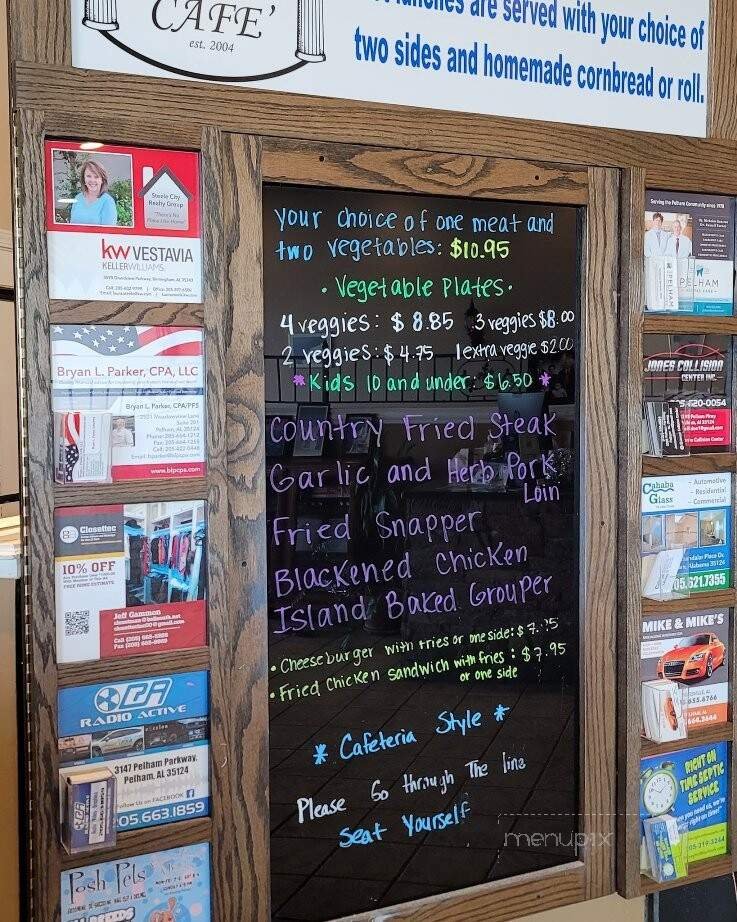 CAFE'
est. 2004
are served with your choice of
two sides and homemade cornbread or roll.
Steele City
Realty Group
kw VESTAVIA
KELLERWILLIAMS.
Bryan L. Parker, CPA, LLC
Bryan L. Parker, CPA/PFS
Suite 201
www.blpcpa.com
Closettec
10% OFF
FREE HOME ESTIMATE
Jeff Gammon
RADIO ACTIVE
3147 Pelham Parkway,
Pelham, AL 35124
Follow Us on FACEBOOK
05.663.1859
Posh Pets
your choice of one meat and
two vegetables: $10.95
• Vegetable Plates •
4 veggies: $8.85 3 veggies $8.00
2 veggies: $4.75 1 extra veggie $2.00
* Kids 10 and under: $6.50 *
Country Fried Steak
Garlic and Herb Pork
Loin
Fried Snapper
Blackened Chicken
Island Baked Grouper
• Cheeseburger with fries or one side: $
• Fried Chicken Sandwich with fries: $7.95
or one side
* Cafeteria Style *
Please Go through The line
Seat Yourself
menupix
Serving the Pelham Community since 1978
PELHAM
JONES COLLISION
CENTER INC.
620-0054
Cahaba
Glass
- Automotive
- Residential
- Commercial
05.621.7355
MIKE & MIKE'S
RIGHT ON
TIME SEPTIC
SERVICE